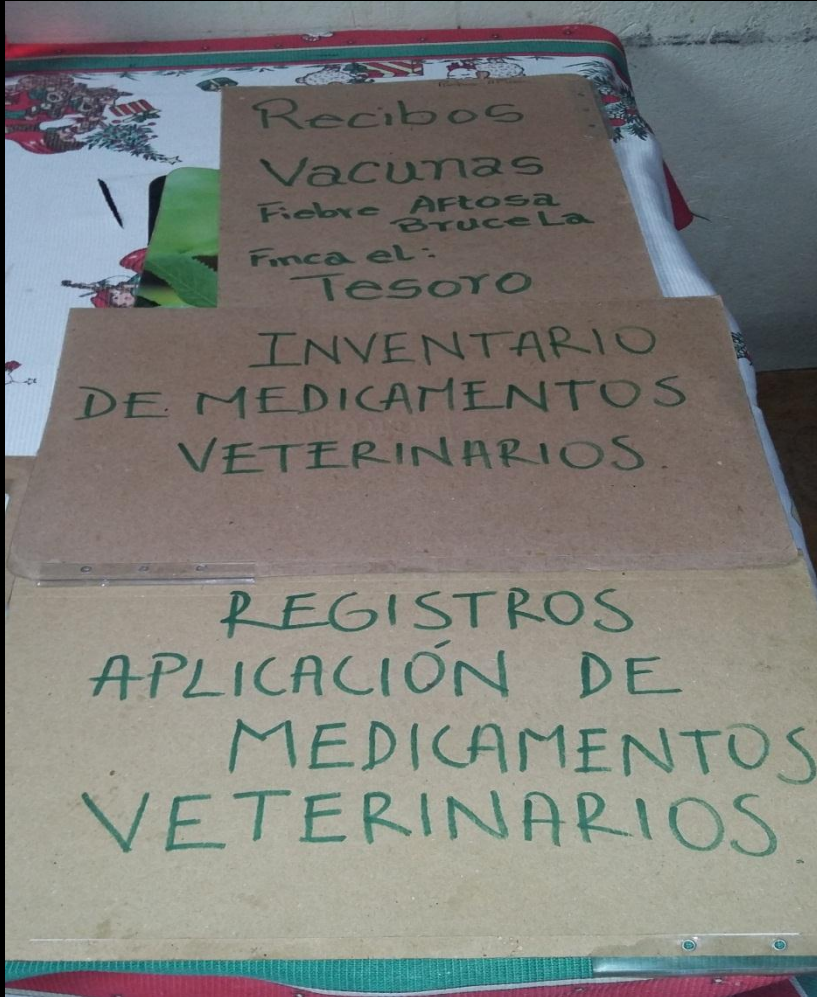 Recibos
Vacunas
Fiebre Aftosa
Brucela
Finca el:
Tesoro
INVENTARIO
DE MEDICAMENTOS
VETERINARIOS
REGISTROS
APLICACIÓN DE
MEDICAMENTOS
VETERINARIOS